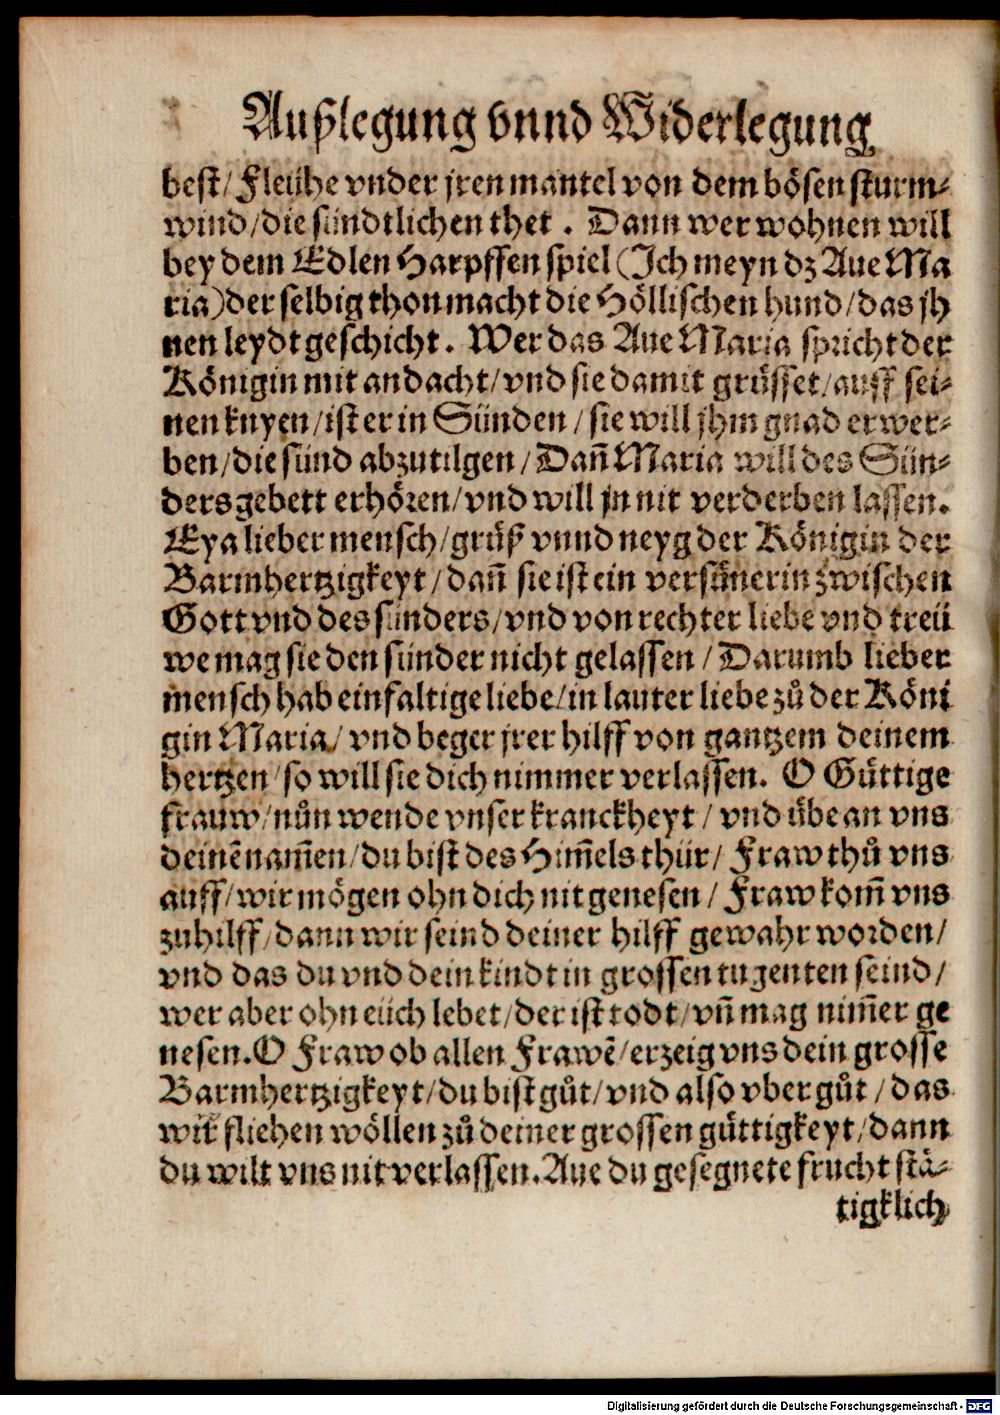 Außlegung vnnd Widerlegung
best/ Fleühe vnder jren mantel von dem bösen sturm-
wind/die sündtlichen thet . Dann wer wohnen will
bey dem Edlen Harpffen spiel (Ich meyn dz Aue Ma
ria) der selbig thon macht die Höllischen hund/das jh
nen leydt geschicht. Wer das Aue Maria spricht der
Königin mit andacht/vnd sie damit grüsset/auff sei-
nen knyen/ist er in Sünden/sie will jhm gnad erwer-
ben/die sünd abzutilgen/Dañ Maria will des Sün-
ders gebett erhören/vnd will jn nit verderben lassen.
Eya lieber mensch/grüß vnnd neyg der Königin der
Barmhertzigkeyt/dañ sie ist ein versünerin zwischen
Gott vnd des sünders/vnd von rechter liebe vnd treü
we mag sie den sünder nicht gelassen/Darumb lieber
mensch hab einfaltige liebe/in lauter liebe zů der Köni
gin Maria/vnd beger jrer hilff von gantzem deinem
hertzen/so will sie dich nimmer verlassen. O Gůttige
frauw/nůn wende vnser kranckheyt/vnd übe an vns
deinē nam̄en/du bist des Him̄els thür/ Fraw thů vns
auff/wir mögen ohn dich nit genesen/Fraw kom̄ vns
zuhilff/dann wir seind deiner hilff gewahr worden/
vnd das du vnd dein kindt in grossen tugenten seind/
wer aber ohn eüch lebet/der ist todt/vñ mag nim̄er ge
nesen. O Fraw ob allen Frawē/erzeig vns dein grosse
Barmhertzigkeyt/du bist gůt/vnd also vber gůt/das
wir fliehen wöllen zů deiner grossen gůttigkeyt/dann
du wilt vns nit verlassen. Aue du gesegnete frucht stä-
tigklich
Digitalisierung gefördert durch die Deutsche Forschungsgemeinschaft - DFG